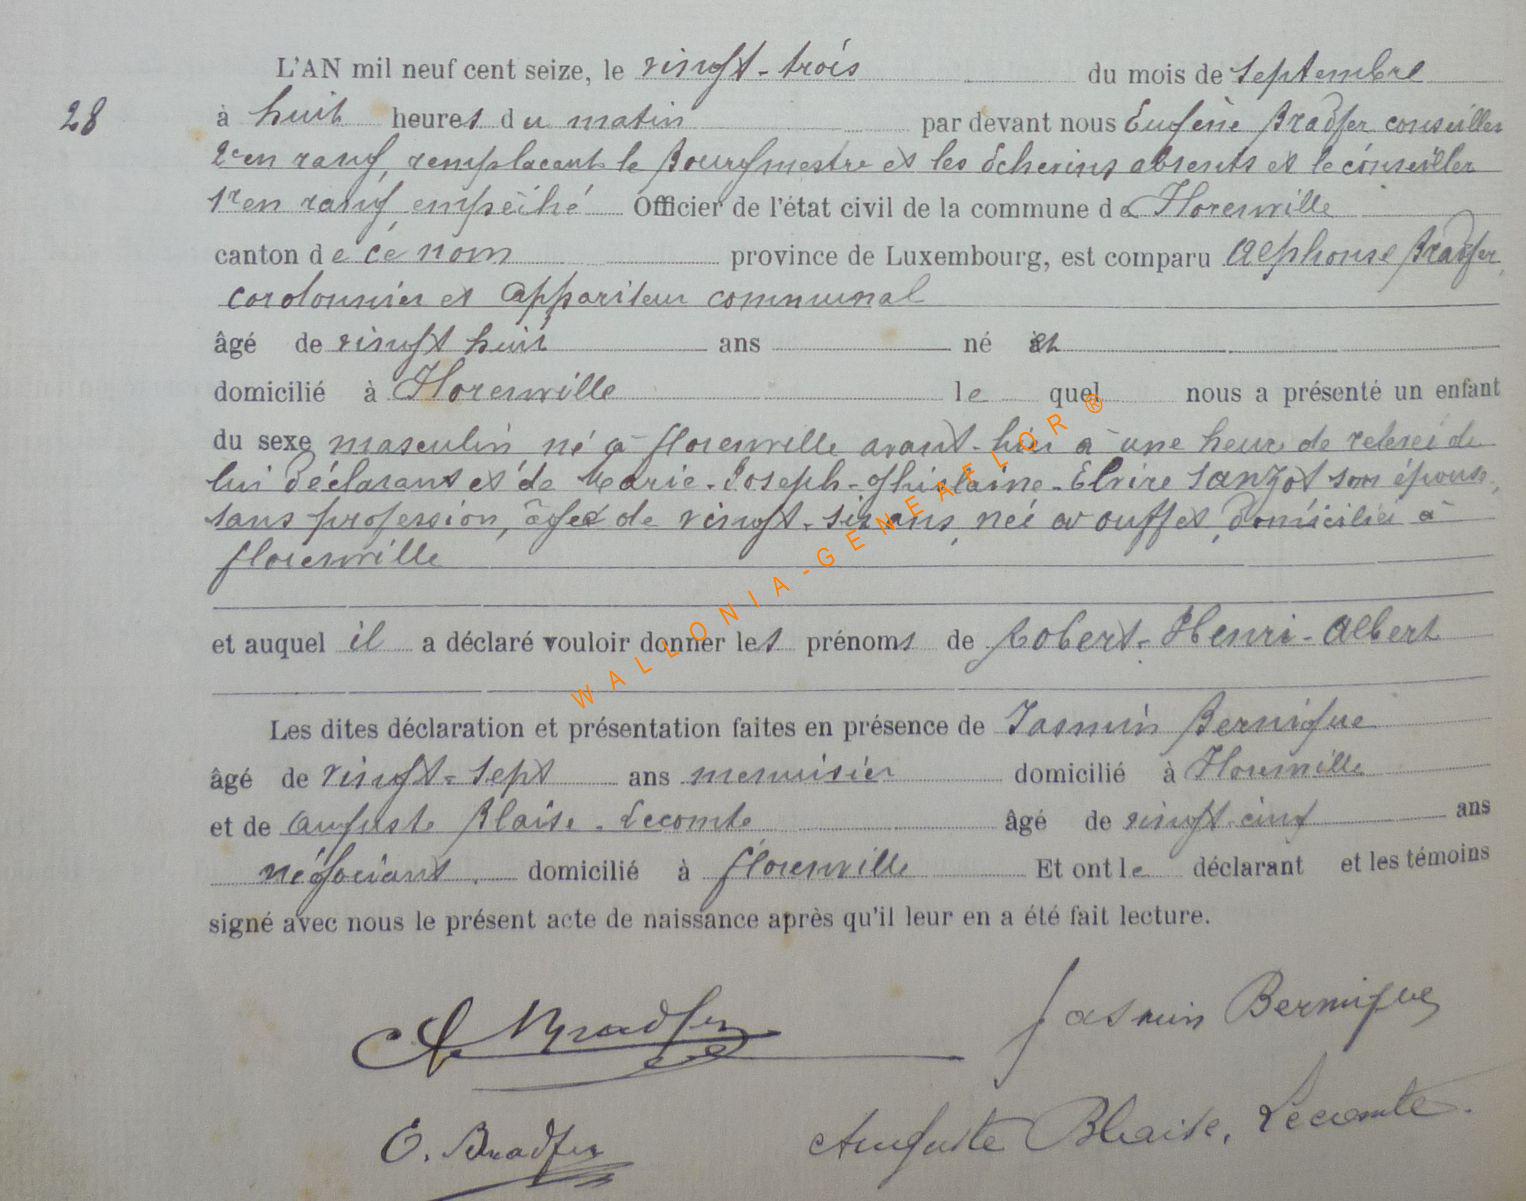 L'AN mil neuf cent seize, le vingt-trois du mois de septembre
28 à huit heures du matin par devant nous Eugène Bradfer conseiller
2e en rang, remplaçant le Bourgmestre et les Echevins absents et le conseiller
1r en rang empêché Officier de l'état civil de la commune de Florenville
canton de ce nom province de Luxembourg, est comparu Alphonse Bradfer,
cordonnier et appariteur communal
âgé de vingt huit ans né et
domicilié à Florenville lequel nous a présenté un enfant
du sexe masculin né à Florenville avant-hier à une heure de relevée de
lui déclarant et de Marie-Joseph-Ghislaine-Elvire Sanzot son épouse,
sans profession, âgée de vingt-six ans, née à Ouffet, domiciliée à
Florenville
et auquel il a déclaré vouloir donner les prénoms de Robert-Henri-Albert
Les dites déclaration et présentation faites en présence de Jasmin Bernique
âgé de vingt-sept ans menuisier domicilié à Florenville
et de Auguste Blaise-Lecomte âgé de vingt-cinq ans
négociant. domicilié à Florenville Et ont le déclarant et les témoins
signé avec nous le présent acte de naissance après qu'il leur en a été fait lecture.
WALLONIA-GENEAFLOR®
A. Bradfer Jasmin Bernique
E. Bradfer Auguste Blaise, Lecomte.